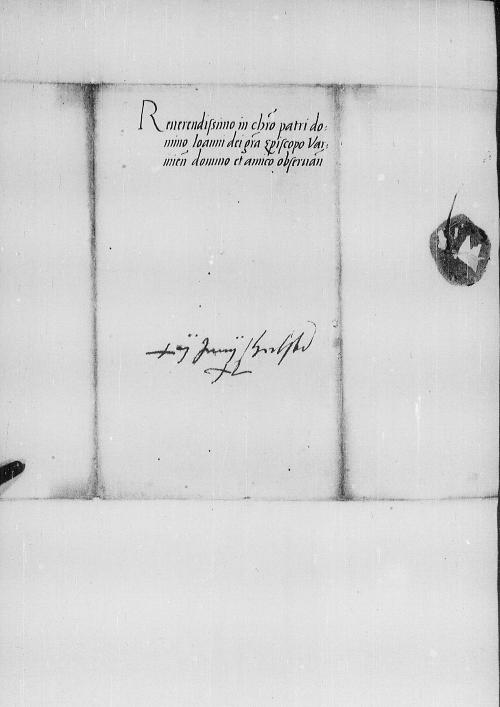 Reuerendissimo in chr̃o patri do:
mino Ioanni dei gr̃a Ep̃iscopo Var:
mieñ domino et amico obseruañ
xij Junij